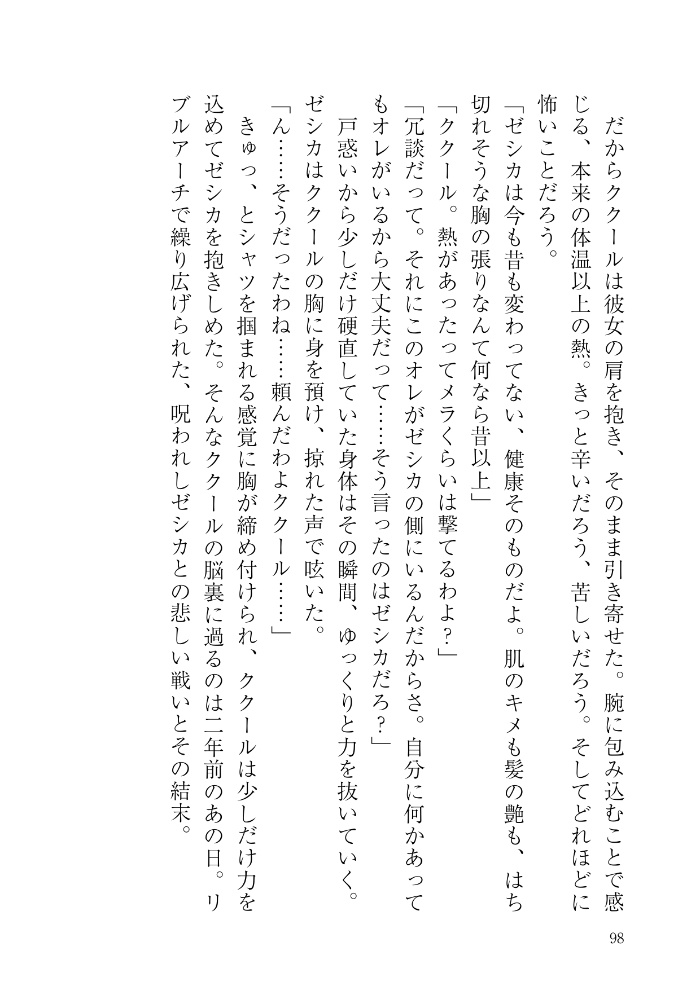 だからククールは彼女の肩を抱き、そのまま引き寄せた。腕に包み込むことで感
じる、本来の体温以上の熱。きっと辛いだろう、苦しいだろう。そしてどれほどに
怖いことだろう。
「ゼシカは今も昔も変わってない、健康そのものだよ。肌のキメも髪の艶も、はち
切れそうな胸の張りなんて何なら昔以上」
「ククール。熱があったってメラくらいは撃てるわよ？」
「冗談だって。それにこのオレがゼシカの側にいるんだからさ。自分に何かあって
もオレがいるから大丈夫だって……そう言ったのはゼシカだろ？」
戸惑いから少しだけ硬直していた身体はその瞬間、ゆっくりと力を抜いていく。
ゼシカはククールの胸に身を預け、掠れた声で呟いた。
「ん……そうだったわね……頼んだわよククール……」
きゅっ、とシャツを掴まれる感覚に胸が締め付けられ、ククールは少しだけ力を
込めてゼシカを抱きしめた。そんなククールの脳裏に過るのは二年前のあの日。リ
ブルアーチで繰り広げられた、呪われしゼシカとの悲しい戦いとその結末。
98